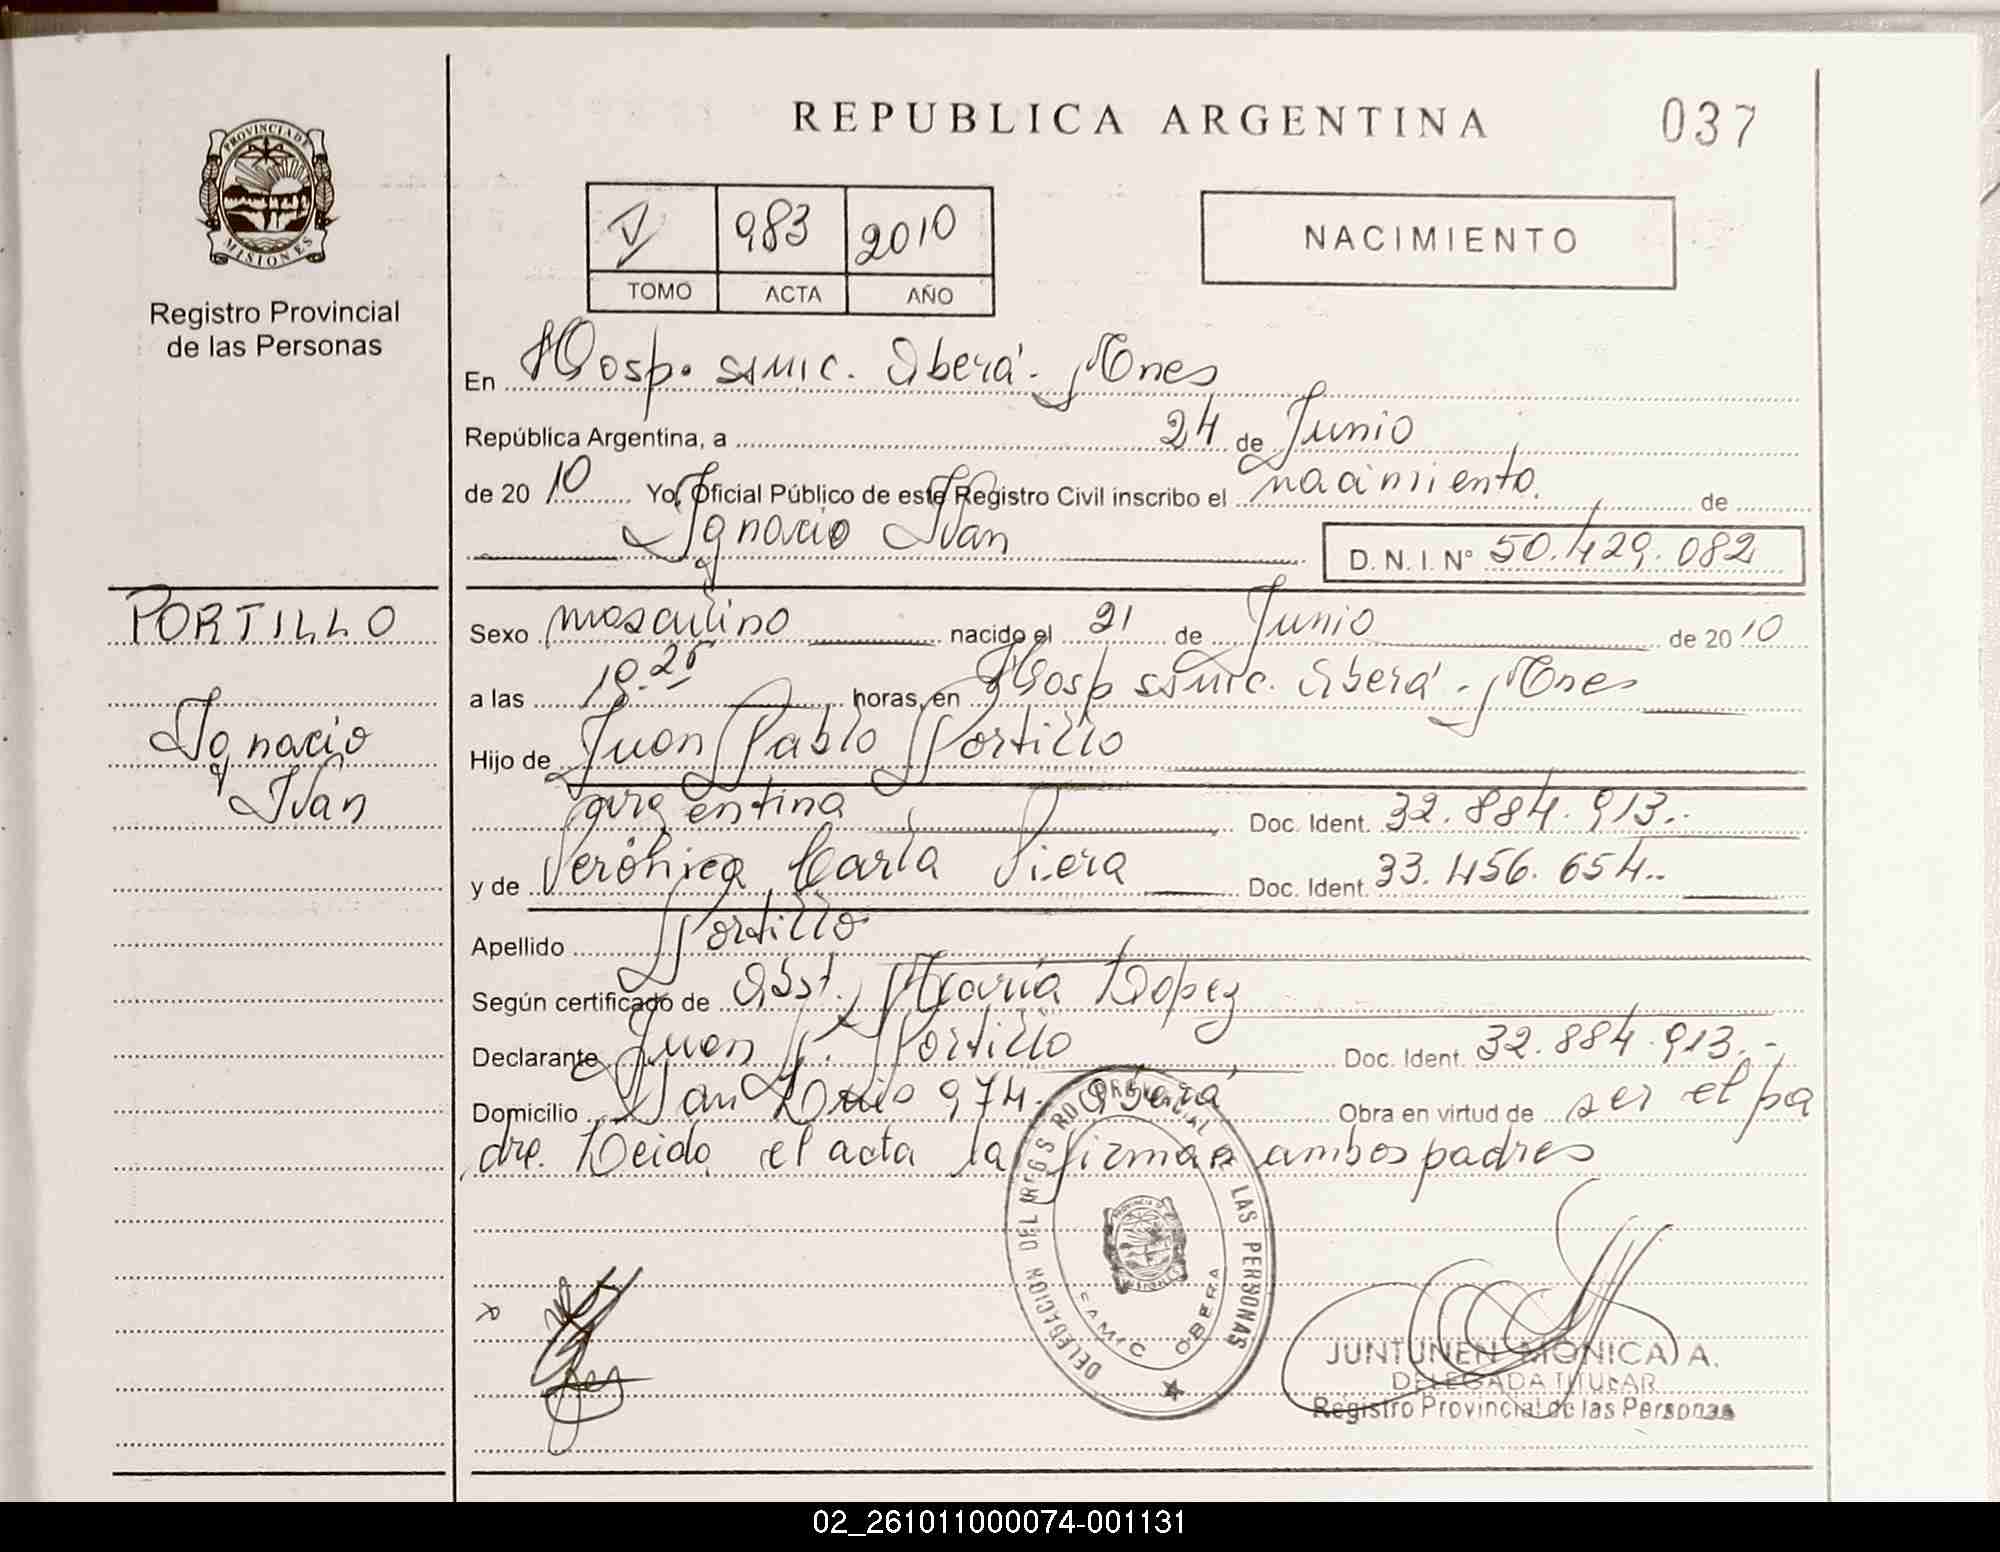 REPUBLICA ARGENTINA
037
PROVINCIA DE
MISIONES
Registro Provincial
de las Personas
V 983 2010
TOMO ACTA AÑO
NACIMIENTO
En Hosp. SAMIC. Oberá. Mnes
República Argentina, a 24 de Junio
de 2010 Yo, Oficial Público de este Registro Civil inscribo el nacimiento de
Ignacio Ivan
D. N. I. Nº 50.429.082
PORTILLO
Ignacio
Ivan
Sexo masculino nacido el 21 de Junio de 2010
a las horas, en Hosp SAMIC. Oberá. Mnes
Hijo de Juan Pablo Portillo
argentina Doc. Ident. 32.884.913..
y de Verónica María Doc. Ident. 33.456.654..
Apellido Portillo
Según certificado de Obst. María Lopez
Declarante Juan P. Portillo Doc. Ident. 32.884.913.-
Domicilio San Luis 974. Oberá Obra en virtud de ser el pa
dre. Leida el acta la firman ambos padres
DELEGACION DEL REGISTRO PROVINCIAL DE LAS PERSONAS
SAMIC OBERA
JUNTUNEN MONICA A.
DELEGADA TITULAR
Registro Provincial de las Personas
02_261011000074-001131